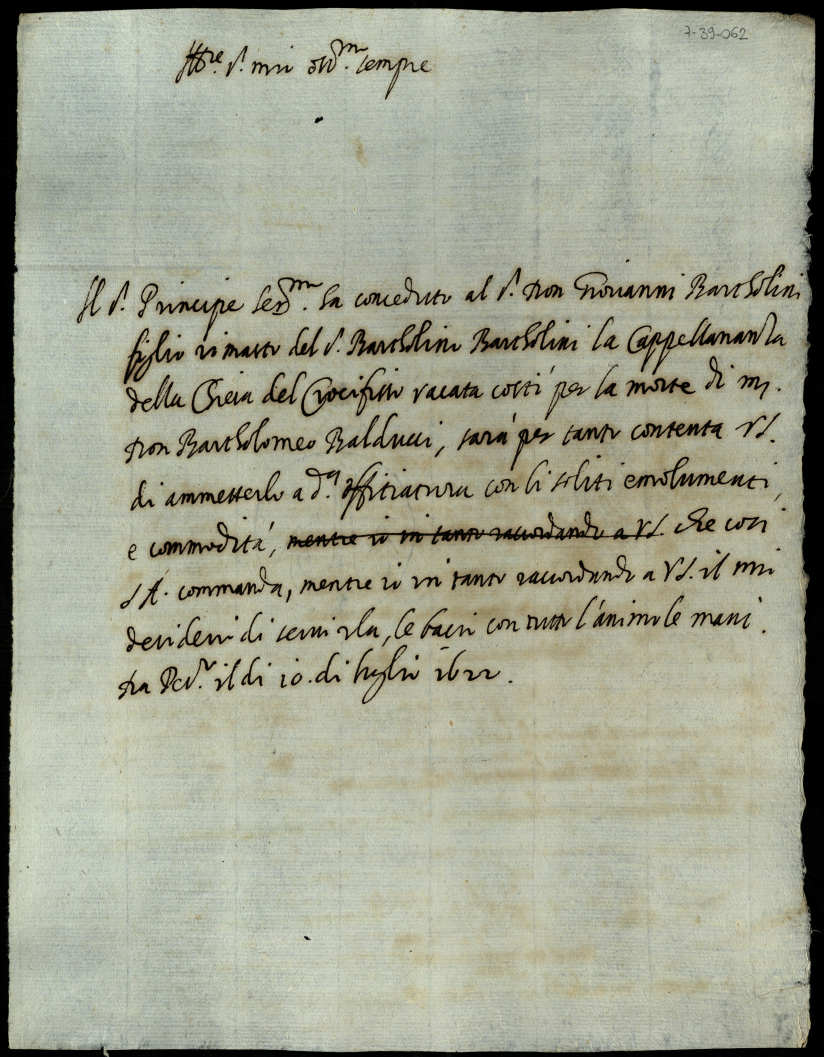 7-39-062
Ill.re S.r mio oss.mo sempre
Il S.r Principe Ser.mo ha conceduto al S.r Don Giovanni Bartholini
figlio rimasto del S.r Bartholino Bartholini la Cappellananza
della Chiesa del Crocifisso vacata costì per la morte di m.
Don Bartholomeo Balducci, sarà per tanto contenta VS.
di ammetterlo a d.a offitiatura con li soliti emolumenti,
e commodità, mentre io in tanto raccordando a VS. che così
S A. commanda, mentre io in tanto raccordando a VS. il mio
desiderio di servirla, le bacio con tutto l'animo le mani.
Da il di 10. di luglio 1622.